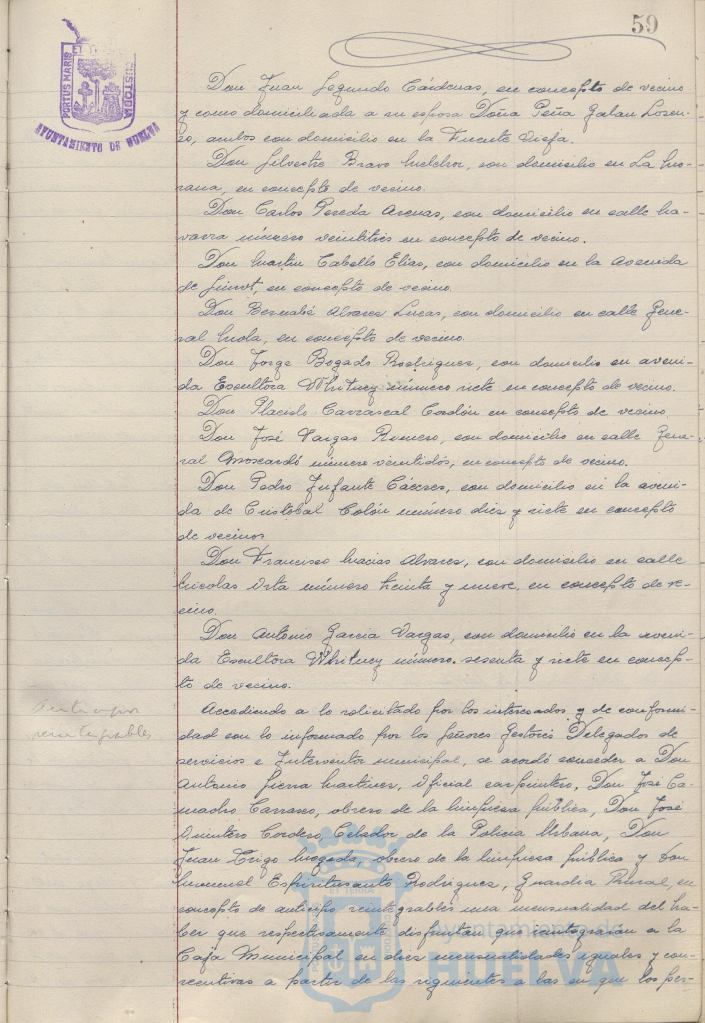 59
PORTUS MARIS ET TERRAE CUSTODIA
AYUNTAMIENTO DE HUELVA
Don Juan Segundo Cárdenas, en concepto de vecino
y como domiciliada a su esposa Doña Peña Galan Loren-
zo, ambos con domicilio en la Fuente Vieja.
Don Silvestre Bravo Melchor, con domicilio en La Mo-
rana, en concepto de vecino.
Don Carlos Pereda Arenas, con domicilio en calle Na-
varra número veintitres en concepto de vecino.
Don Martin Cabello Elías, con domicilio en la Avenida
de, en concepto de vecino.
Don Bernabé Alvarez Lucas, con domicilio en calle Gene-
ral Mola, en concepto de vecino.
Don Jorge Bogado Rodriguez, con domicilio en aveni-
da Escultora Whitney número siete en concepto de vecino.
Don Placido Carrascal Cordón en concepto de vecino.
Don José Vargas Romero, con domicilio en calle Gene-
ral Moscardó número veintidós, en concepto de vecino.
Don Pedro Infante Cáceres, con domicilio en la aveni-
da de Cristobal Colón número diez y siete en concepto
de vecino.
Don Francisco Macias Alvarez, con domicilio en calle
Nicolas Orta número treinta y nueve, en concepto de ve-
cino.
Don Antonio Garcia Vargas, con domicilio en la aveni-
da Escultora Whitney número sesenta y siete en concep-
to de vecino.
Anticipos
reintegrables
Accediendo a lo solicitado por los interesados y de conformi-
dad con lo informado por los Señores Gestores Delegados de
servicios e Interventor municipal, se acordó conceder a Don
Antonio Martinez, Oficial carpintero, Don José Ca-
macho Carrasco, obrero de la limpieza pública, Don José
Quintero Cordero, Celador de la Policía Urbana, Don
Juan Trigo, obrero de la limpieza pública y Don
Manuel Espiritusanto Rodriguez, Guardia Rural, en
concepto de anticipo reintegrables una mensualidad del ha-
ber que respectivamente disfrutan, que reintegrarán a la
Caja Municipal en diez mensualidades iguales y con-
secutivas a partir de las siguientes a las en que los per-
Ayuntamiento de
HUELVA